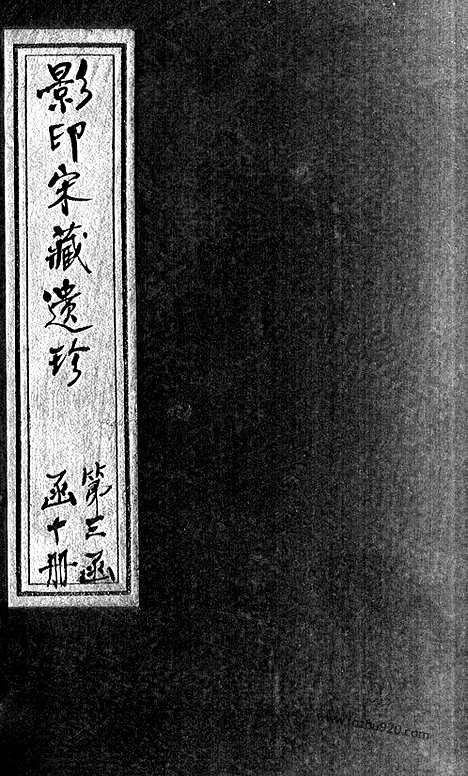 影印宋藏遺珍
第三函
函十册